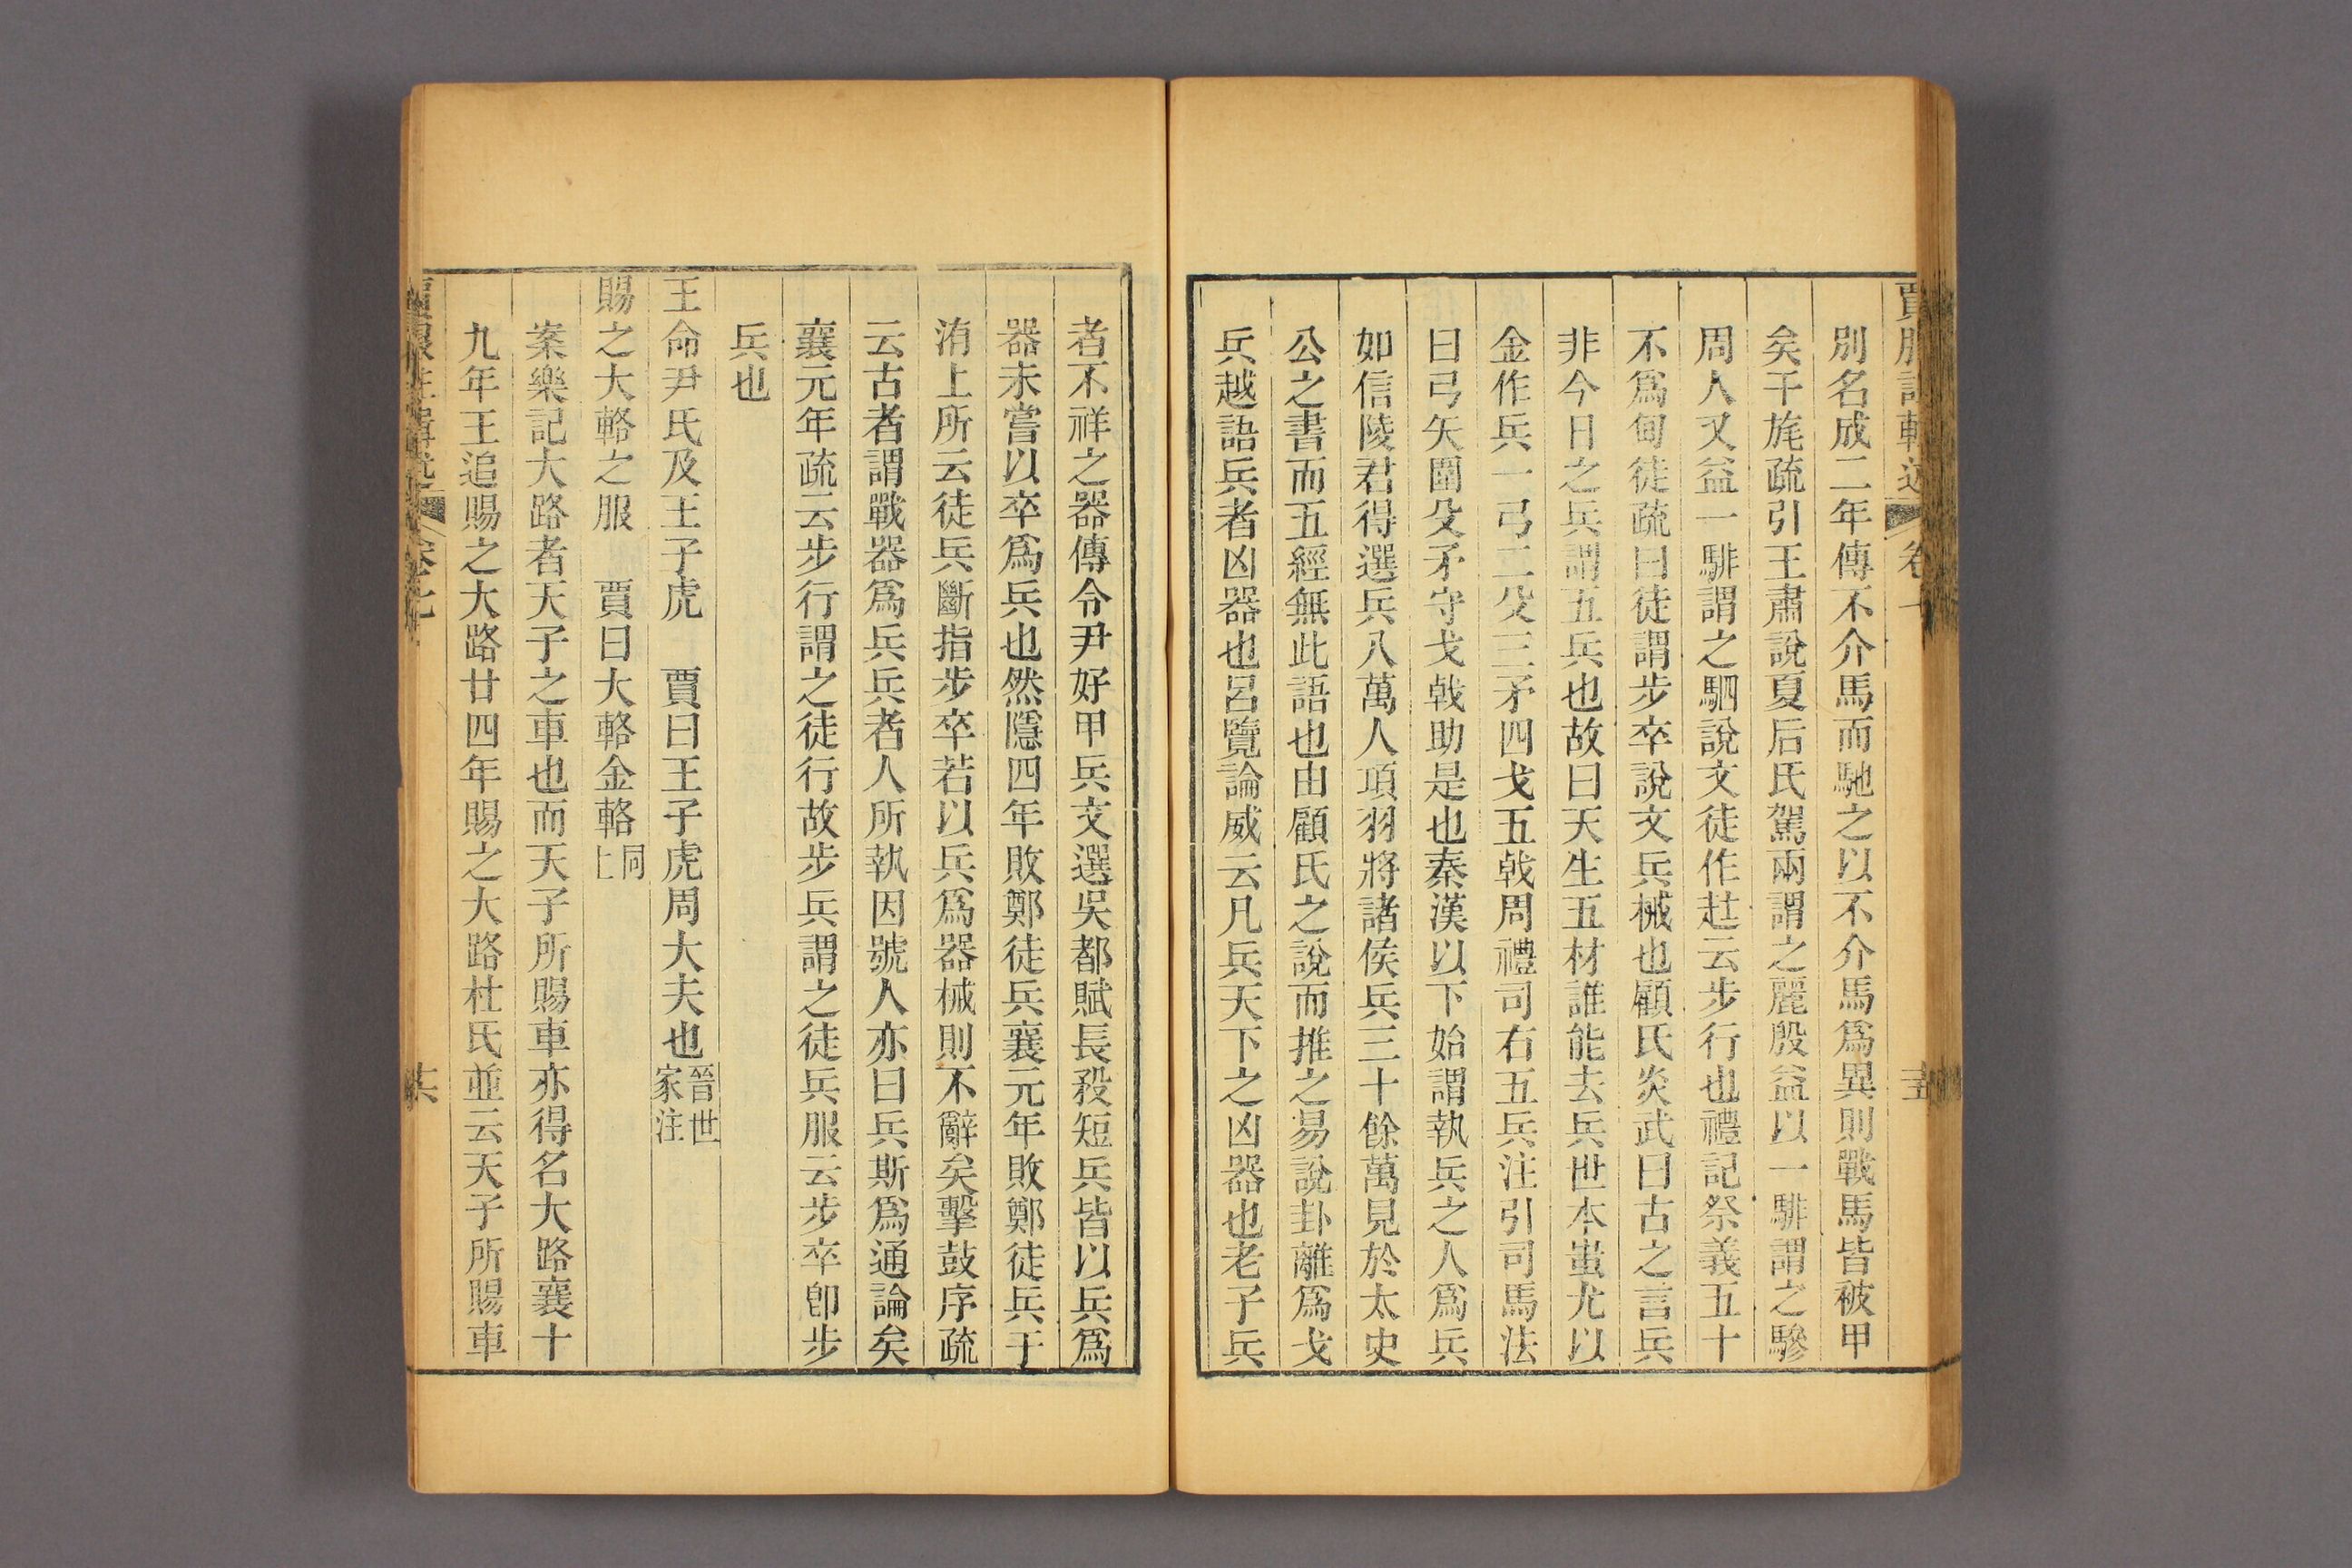 別名成二年傳不介馬而馳之以不介馬爲異則戰馬皆被甲
矣干旄疏引王肅說夏后氏駕兩謂之麗殷益以一騑謂之驂
周人又益一騑謂之駟說文徒作䢌云步行也禮記祭義五十
不爲甸徒疏曰徒謂步卒說文兵械也顧氏炎武曰古之言兵
非今日之兵謂五兵也故曰天生五材誰能去兵世本蚩尤以
金作兵一弓二殳三矛四戈五戟周禮司右五兵注引司馬法
曰弓矢圍殳矛守戈戟助是也秦漢以下始謂執兵之人爲兵
如信陵君得選兵八萬人項羽將諸侯兵三十餘萬見於太史
公之書而五經無此語也由顧氏之說而推之易說卦離爲戈
兵越語兵者凶器也呂覽論威云凡兵天下之凶器也老子兵
者不祥之器傳令尹好甲兵文選吳都賦長殺短兵皆以兵爲
器未嘗以卒爲兵也然隱四年敗鄭徒兵襄元年敗鄭徒兵于
洧上所云徒兵斷指步卒若以兵爲器械則不辭矣擊鼓序疏
云古者謂戰器爲兵兵者人所執因號人亦曰兵斯爲通論矣
襄元年疏云步行謂之徒行故步兵謂之徒兵服云步卒卽步
兵也
王命尹氏及王子虎　賈曰王子虎周大夫也晉世家注
賜之大輅之服　賈曰大輅金輅同上
案樂記大路者天子之車也而天子所賜車亦得名大路襄十
九年王追賜之大路廿四年賜之大路杜氏並云天子所賜車